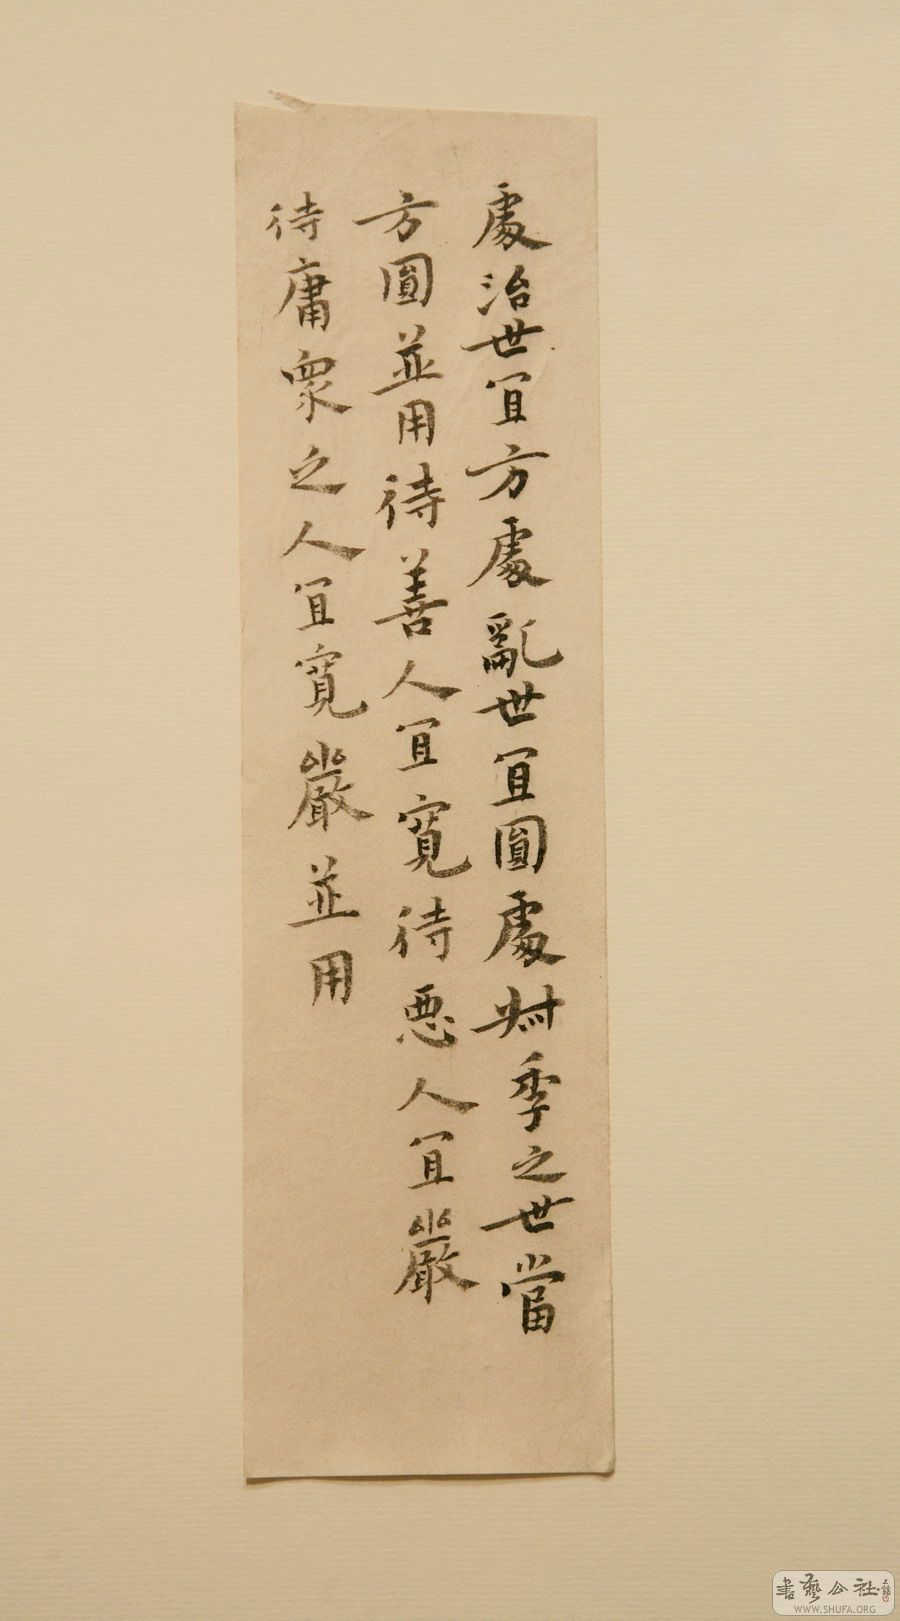 處治世宜方處亂世宜圓處叔季之世當
方圓並用待善人宜寬待惡人宜嚴
待庸衆之人宜寬嚴並用
書藝公社
WWW.SHUFA.ORG